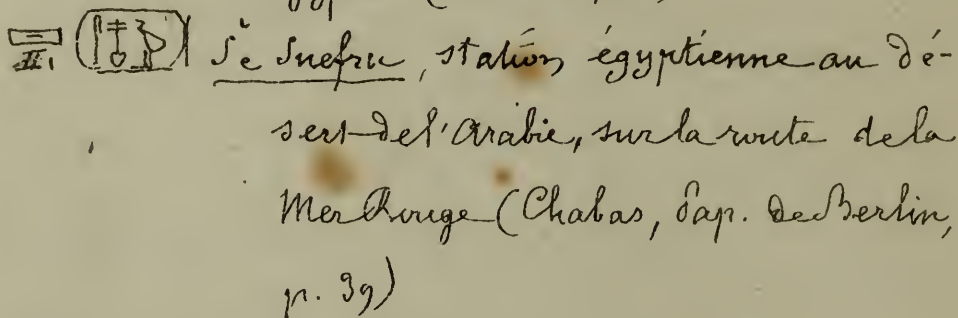 Še Snefru, station égyptienne au dé-
sert de l'Arabie, sur la route de la
Mer Rouge (Chabas, Pap. de Berlin,
p. 39)